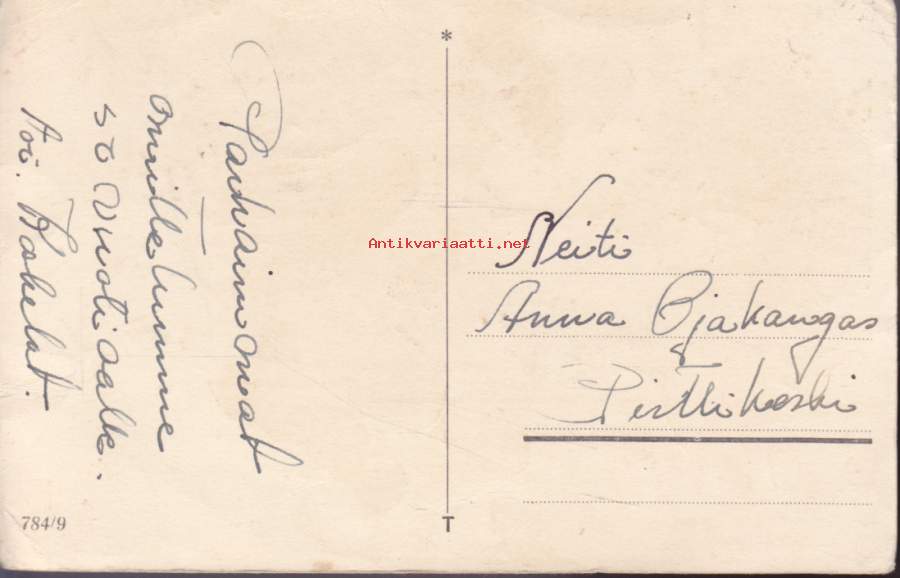 Parhaimmat
onnittelumme
50 vuotiaalle.
Kahelat.
784/9
*
T
Antikvariaatti.net
Neiti
Anna Ojakangas
Pirttikoski